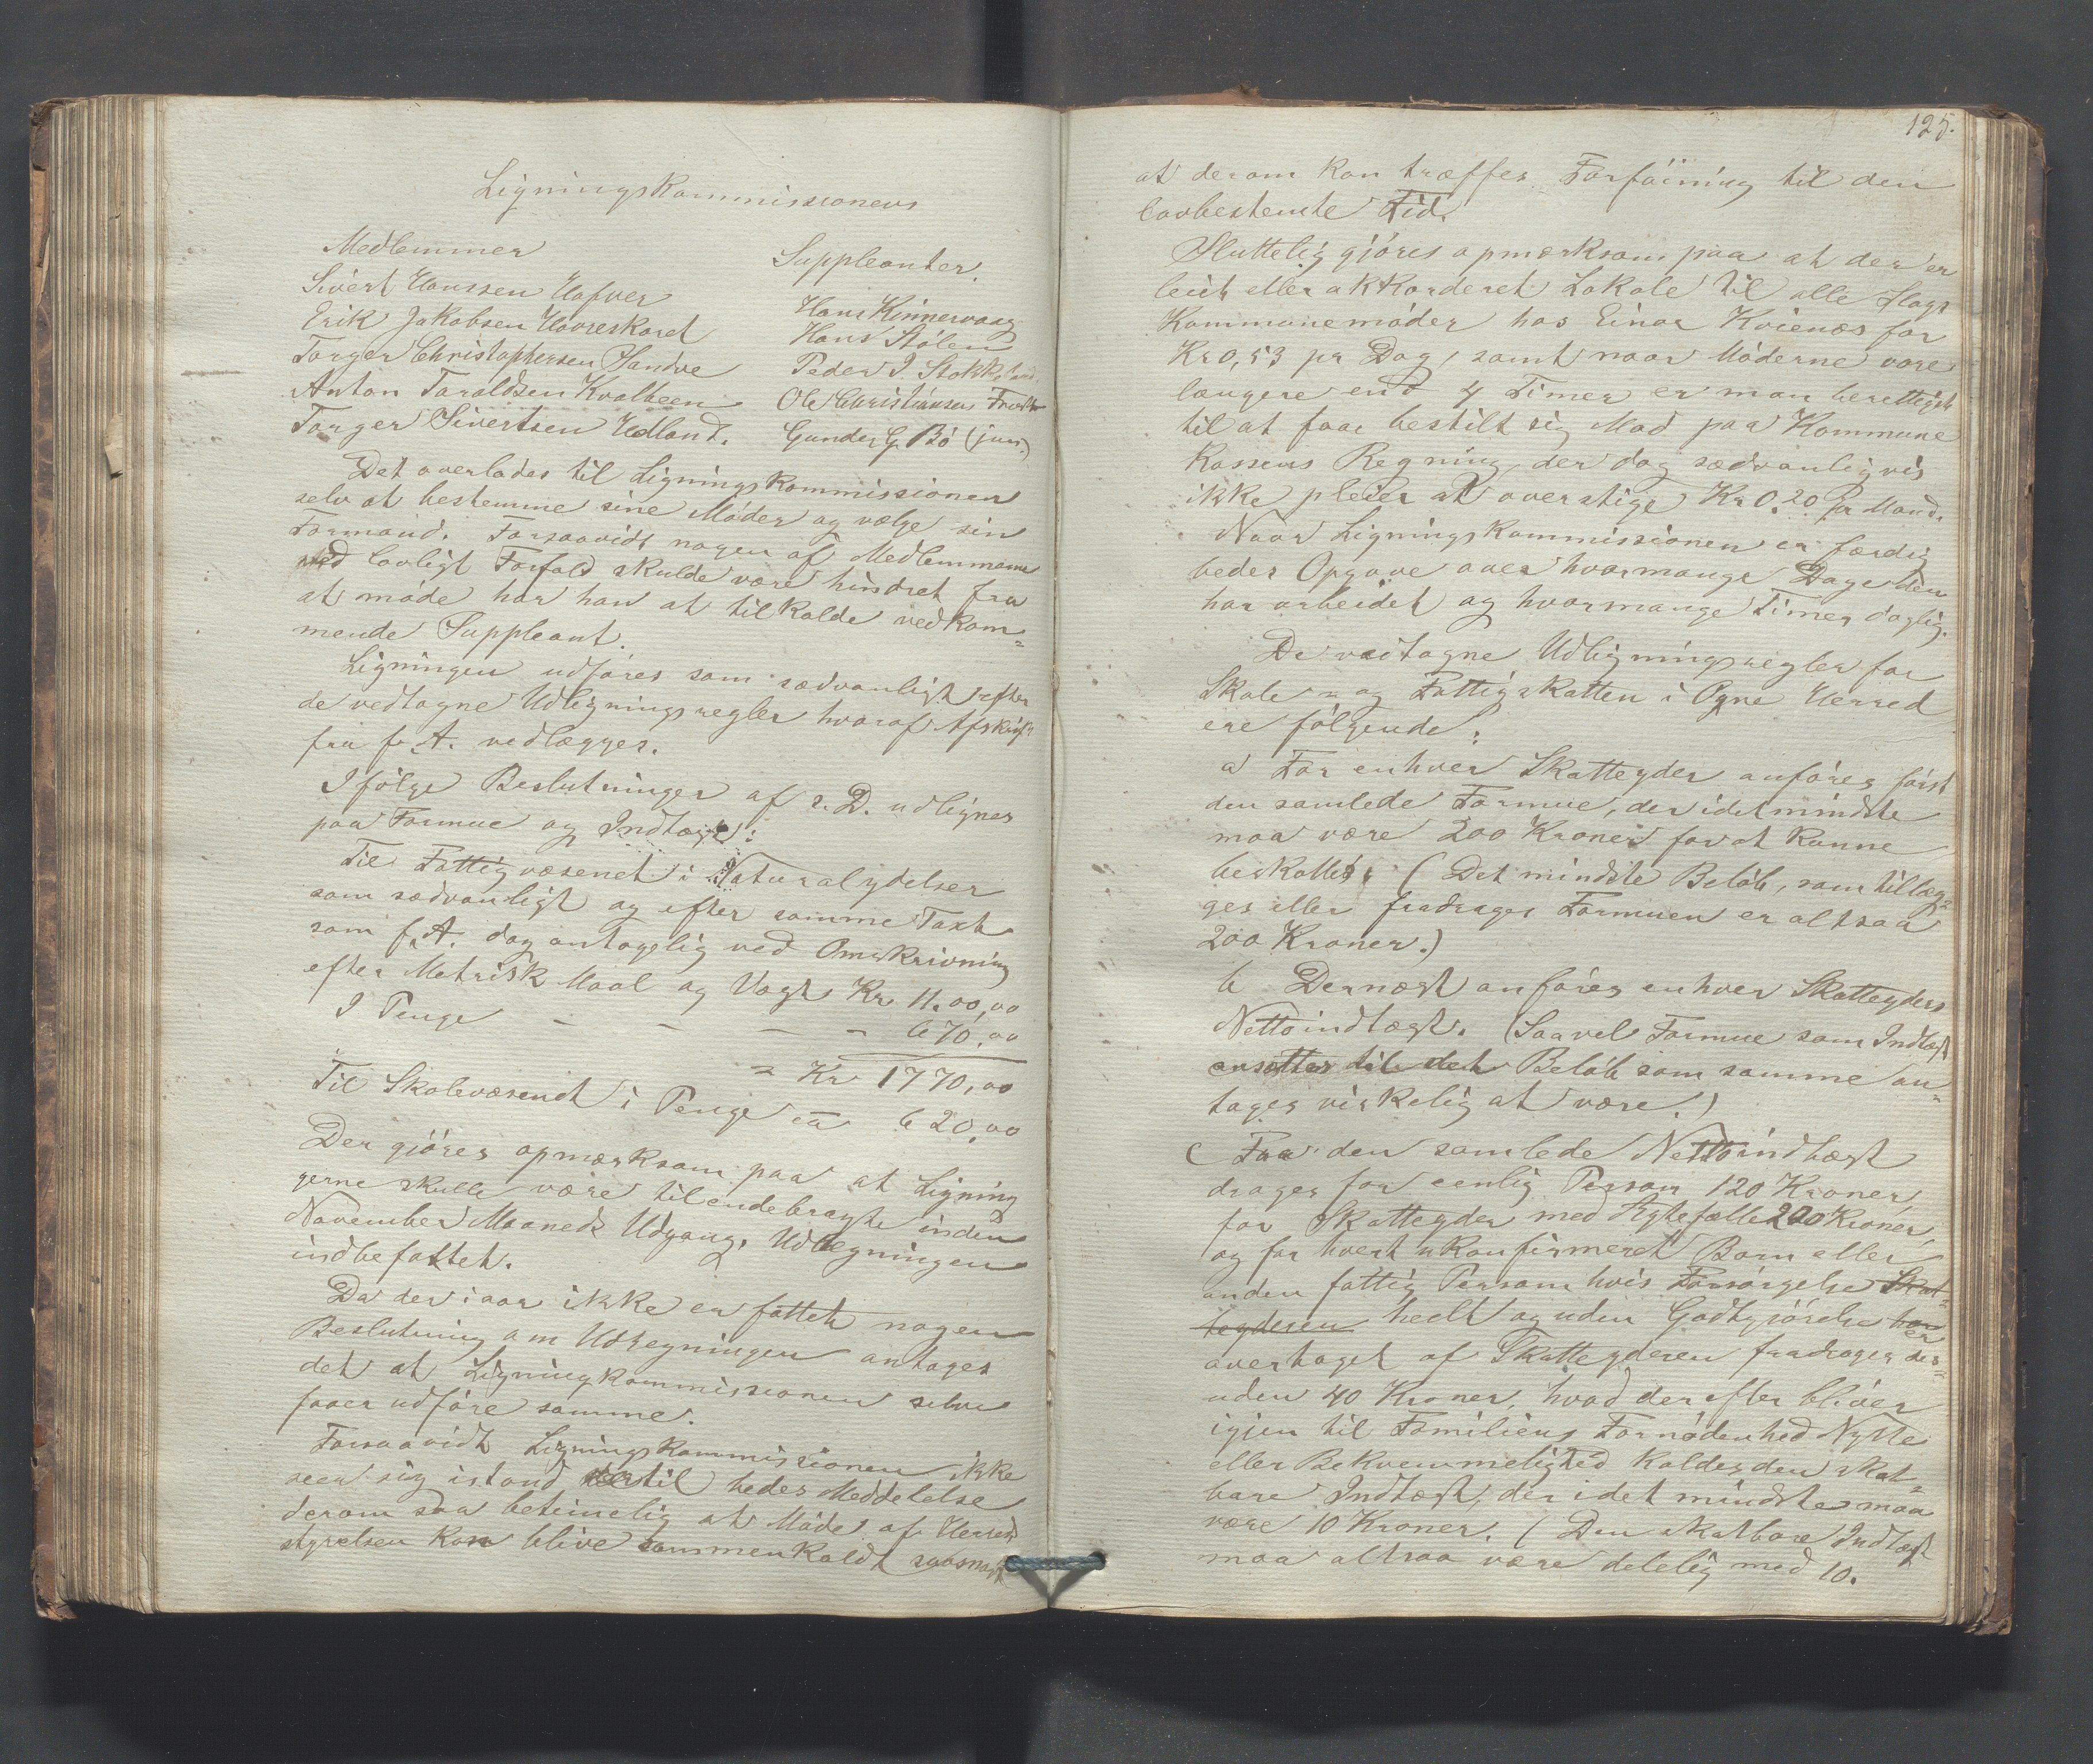 Ligningskommissionens
Medlemmer
Sivert Hanssen Hafver
Erik Jakobsen Hovreskard
Torger Christophersen Sandve
Anton Taraldsen Kvalbeen
Torger Sivertsen Udland.
Suppleanter.
Hans Kinnervaag
Hans Stölen
Peder I Stokkeland
Ole Christiansen
Gunder G. Bö (jun.)
Det overlades til Ligningskommissionen
selv at bestemme sine Möder og vælge sin
Formand. Forsaavidt nogen af Medlemmerne
ved lovligt Forfald skulde være hindret fra
at möde har han at tilkalde vedkom-
mende Suppleant.
Ligningen udföres som sædvanligt efter
de vedtagne Udligningsregler hvoraf Afskrift
fra f. A. vedlægges.
Ifölge Beslutninger af s. D. udlignes
paa Formue og Indtægt:
Til Fattigvæsenet i Naturalydelser
som sædvanligt og efter samme Taxt
som f. A. dog antagelig ved Omskrivning
efter Metrisk Maal og Vægt Kr 11.00,00
I Penge - - - - 670,00
= Kr 1770,00
Til Skolevæsenet i Penge ca 620,00
Der gjöres opmærksom paa at Lignin
gerne skulle være tilendebragte inden
November Maaneds Udgang, Udregningen
indbefattet.
Da der i aar ikke er fattet nogen
Beslutning om Udregningen antages
det at Ligningkommissionen selv
faaer udföre samme.
Forsaavidt Ligningskommissionen ikke
seer sig istand dertil bedes Meddelelse
derom saa betimelig at Möde af Herreds
styrelsen kan blive sammenkaldt saasnart
125.
at derom kan træffes Forföining til den
lovbestemte Tid.
Sluttelig gjöres opmærksom paa at der er
leiet eller akkorderet Lokale til alle Slags
Kommunemöder hos Einar Kvienæs for
Kr 0,53 pr Dag, samt naar Möderne vare
længere end 4 Timer er man berettiget
til at faae bestilt sig Mad paa Kommune
Kassens Regning, der dog sædvanligvis
ikke pleier at overstige Kr 0.20 pr Mand.
Naar Ligningskommissionen er færdig
bedes Opgave over hvormange Dage den
har arbeidet og hvormange Timer daglig.
De vedtagne Udligningsregler for
Skole- og Fattigskatten i Ogne Herred
ere fölgende:
a For enhver Skatteyder anföres först
den samlede Formue, der i det mindste
maa være 200 Kroner for at kunne
beskattes. (Det mindste Belöb, som tillæg-
ges eller fradrages Formuen er altsaa
200 Kroner.)
b Dernæst anföres enhver Skatteyders
Nettoindtægt. (Saavel Formue som Indtægt
ansættes til det Belöb som samme an-
tages virkelig at være.)
c Fra den samlede Nettoindtægt
drages for eenlig Person 120 Kroner,
for Skatteyder med Ægtefælle 220 Kroner,
og for hvert ukonfirmeret Barn eller
anden fattig Person hvis Forsörgelse Skat-
teyderen heelt og uden Godtgjörelse har er
overtaget af Skatteyderen fradrages des-
uden 40 Kroner, hvad der efter bliver
igjen til Familiens Fornödenhed Nytte
eller Bekvemmelighed kaldes den skat-
bare Indtægt, der i det mindste maa
være 10 Kroner. (Den skatbare Indtægt
maa altsaa være delelig med 10.